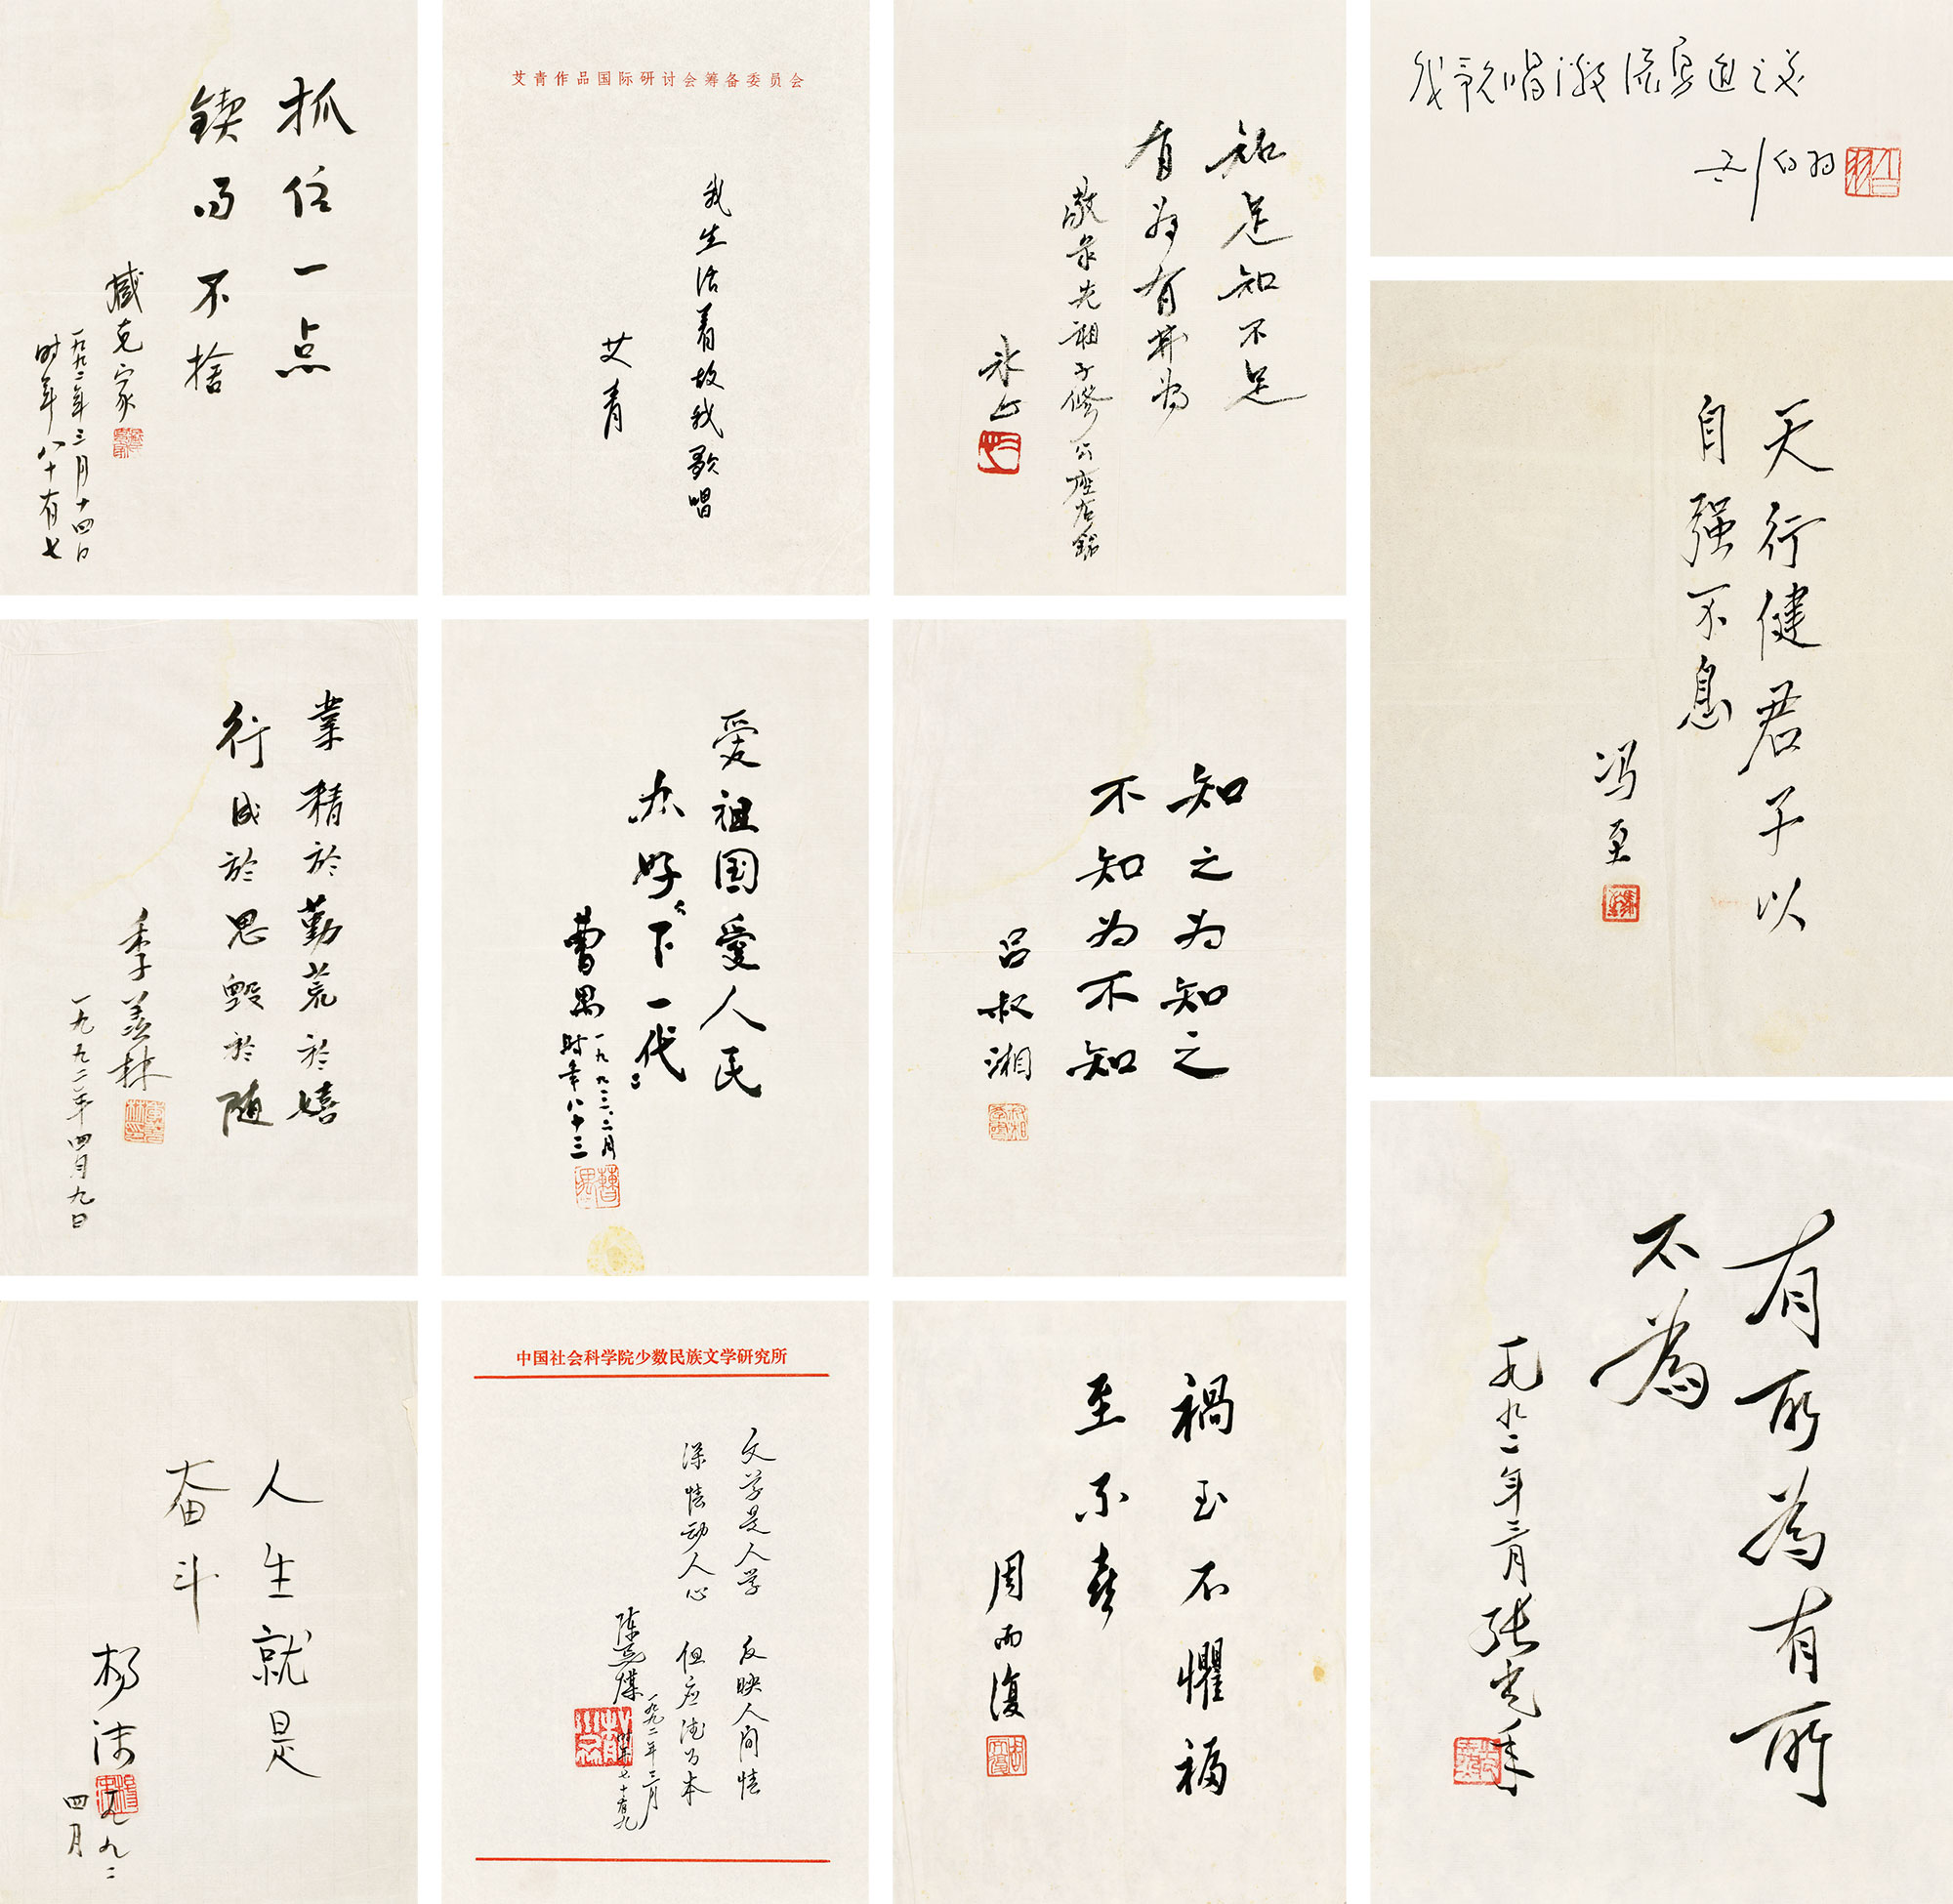 抓住一点
锲而不捨
臧克家
一九九二年三月十四日
时年八十有七
艾青作品国际研讨会筹备委员会
我生活着故我歌唱
艾青
知足知不足
有为有弗为
敬录先祖子修公座右铭
冰心
我歌唱激流勇进之志
刘白羽
天行健君子以
自强不息
冯至
業精於勤荒於嬉
行成於思毁於随
季羡林
一九九二年四月九日
爱祖国爱人民
为好下一代
曹禺
一九九二.二月
时年八十三
知之为知之
不知为不知
吕叔湘
有所為有所
不為
一九九二年三月 张光年
人生就是
奋斗
杨沫
一九九二
四月
中国社会科学院少数民族文学研究所
文学是人学 反映人间情
深情动人心 但应德为本
陈荒煤
一九九二年三月
时年七十有九
禍至不懼福
至不喜
周而復